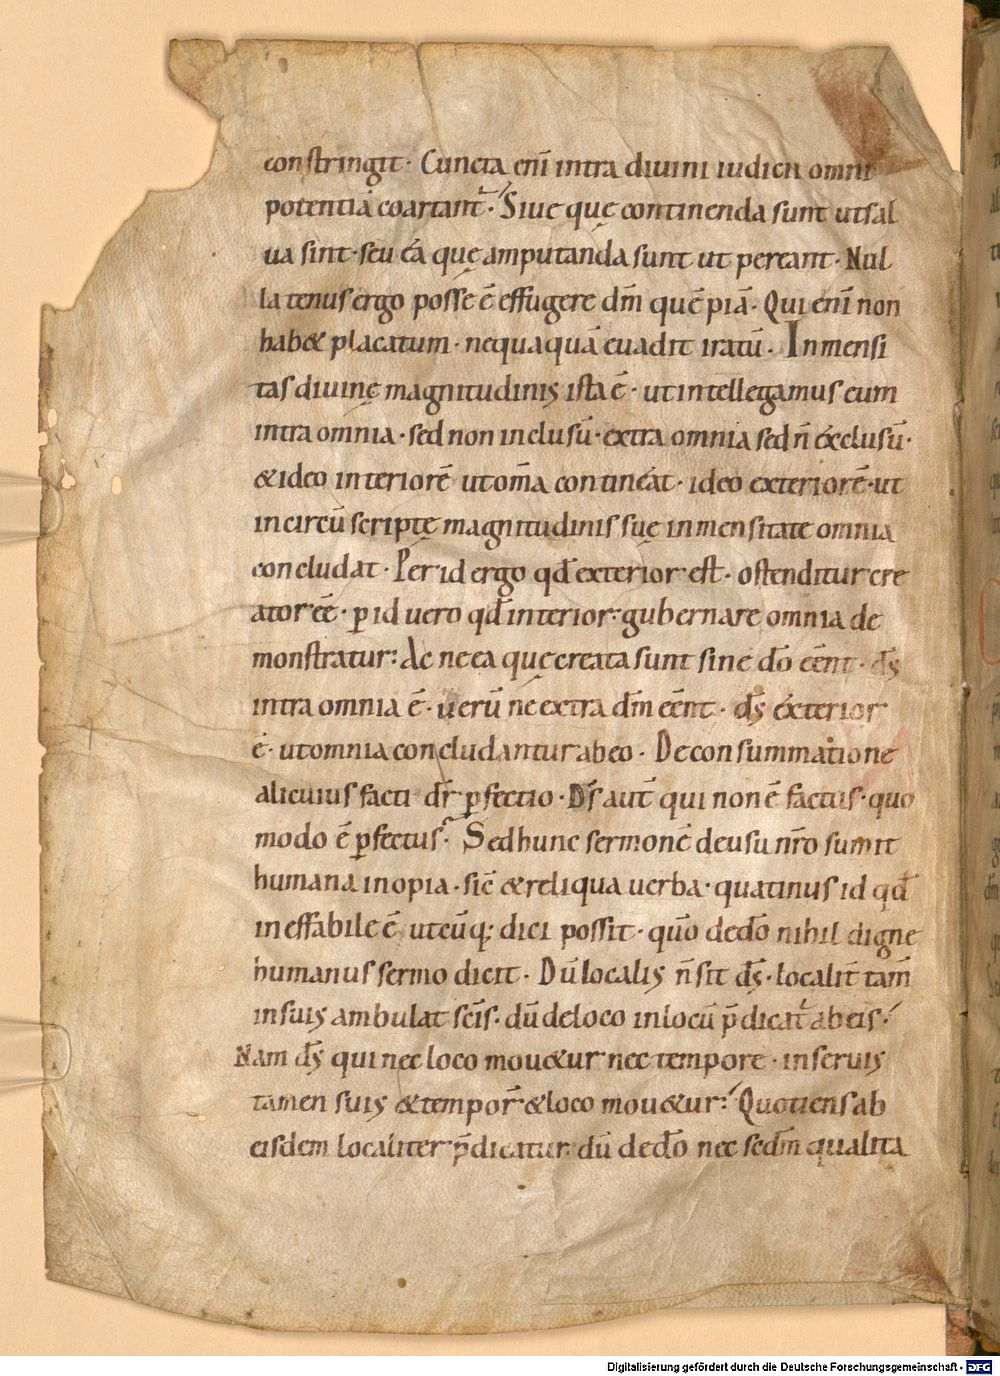 constringit· Cuncta eni̅ intra diuini iudicii omni
potentia̅ coartant̅· Siue quę continenda sunt ut sal
ua sint· seu ea quę amputanda sunt ut pereant· Nul
la tenus ergo posse e̅ effugere dm̅ que̅ pia̅· Qui eni̅ non
hab& placatum· nequaqua̅ euadit iratu̅· Inmensi
tas diuinę magnitudinis ista e̅· ut intellegamus eum
intra omnia· sed non inclusu̅· extra omnia sed n̅ exclusu̅·
& ideo interiore̅ ut om̅a contineat· ideo exteriore̅· ut
incircu̅scriptę magnitudinis suę inmensitate omnia
concludat· Per id ergo qđ exterior est· ostenditur cre
ator ee̅· ꝑ id uero qđ interior· gubernare omnia de
monstratur· Ac ne ea quę creata sunt sine do̅ ee̅nt· ds̅
intra omnia e̅· ueru̅ ne extra dm̅ ee̅nt· ds̅ exterior
e̅· ut omnia concludantur ab eo· De consummatione
alicuius facti dr̅ ꝑfectio· Ds̅ aut̅ qui non e̅ factus· quo
modo e̅ ꝑfectus· Sed hunc sermone̅ de usu nr̅o sumit
humana inopia· sic̅ & reliqua uerba· quatinus id qđ
ineffabile e̅ utcu̅q; dici possit· quo̅ de do̅ nihil digne
humanus sermo dicit· Du̅ localis n̅ sit ds̅· localit̅ tam̅
in suis ambulat sci̅s· du̅ de loco in locu̅ p̅dicat̅ ab eis·
Nam ds̅ qui nec loco mou&ur nec tempore· in seruis
tamen suis & tempor̅ & loco mou&ur· Quotiens ab
eisdem localiter p̅dicatur· du̅ de do̅ nec sedm̅ qualita
Digitalisierung gefördert durch die Deutsche Forschungsgemeinschaft - DFG